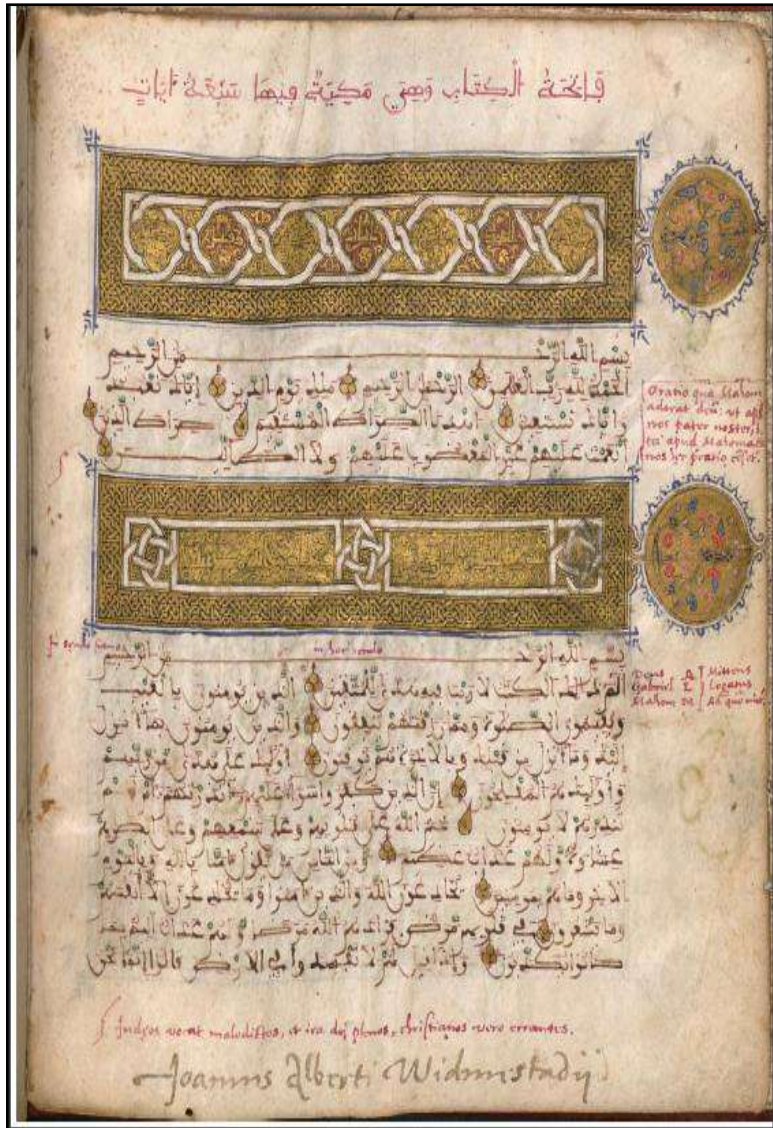 فَاتِحَةُ الْكِتَابِ وَهِيَ مَكِّيَةٌ فِيهَا سَبْعَةُ ءَايَاتٍ
بسم الله الرحمن الرحيم
الحمد لله رب العلمين الرحمن الرحيم ملك يوم الدين إياك نعبد
وإياك نستعين اهدنا الصراط المستقيم صراط الذين
أنعمت عليهم غير المغضوب عليهم ولا الضالين
Oratio qua Mahom
aderat
nos pater noster
apud Mahoma
nos oratio
بسم الله الرحمن الرحيم
الم ذلك الكتب لا ريب فيه هدى للمتقين الذين يومنون بالغيب
ويقيمون الصلوة ومما رزقنهم ينفقون والذين يومنون بما أنزل
إليك وما أنزل من قبلك وبالاخرة هم يوقنون أوليك على هدى من ربهم
وأوليك هم المفلحون إن الذين كفروا سواء عليهم ءأنذرتهم أم لم
تنذرهم لا يومنون ختم الله على قلوبهم وعلى سمعهم وعلى أبصرهم
غشوة ولهم عذاب عظيم ومن الناس من يقول ءامنا بالله وباليوم
الاخر وما هم بمومنين يخدعون الله والذين ءامنوا وما يخدعون إلا أنفسهم
وما يشعرون في قلوبهم مرض فزادهم الله مرضا ولهم عذاب اليم بما
كانوا يكذبون وإذا قيل لهم لا تفسدوا في الارض قالوا إنما نحن
Deus Mittens
Gabriel Legatus
Mahom Ad quem
Judeos vocat maledictos, et ira dei plenos, christianos vero errantes.
Joannis Alberti Widmestadij